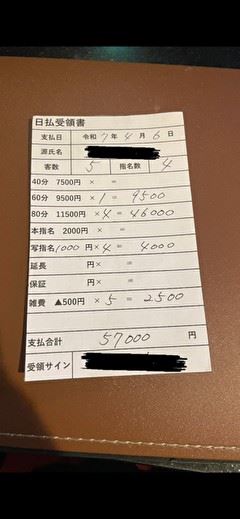 日払受領書
支払日 令和 7 年 4 月 6 日
源氏名
客数 5 指名数 4
40分 7500円 × =
60分 9500円 × 1 = 9500
80分 11500円 × 4 = 46000
本指名 2000円 × =
写指名 1000 円 × 4 = 4000
延長 円 × =
保証 円 × =
雑費 ▲500円 × 5 = 2500
支払合計 57000 円
受領サイン